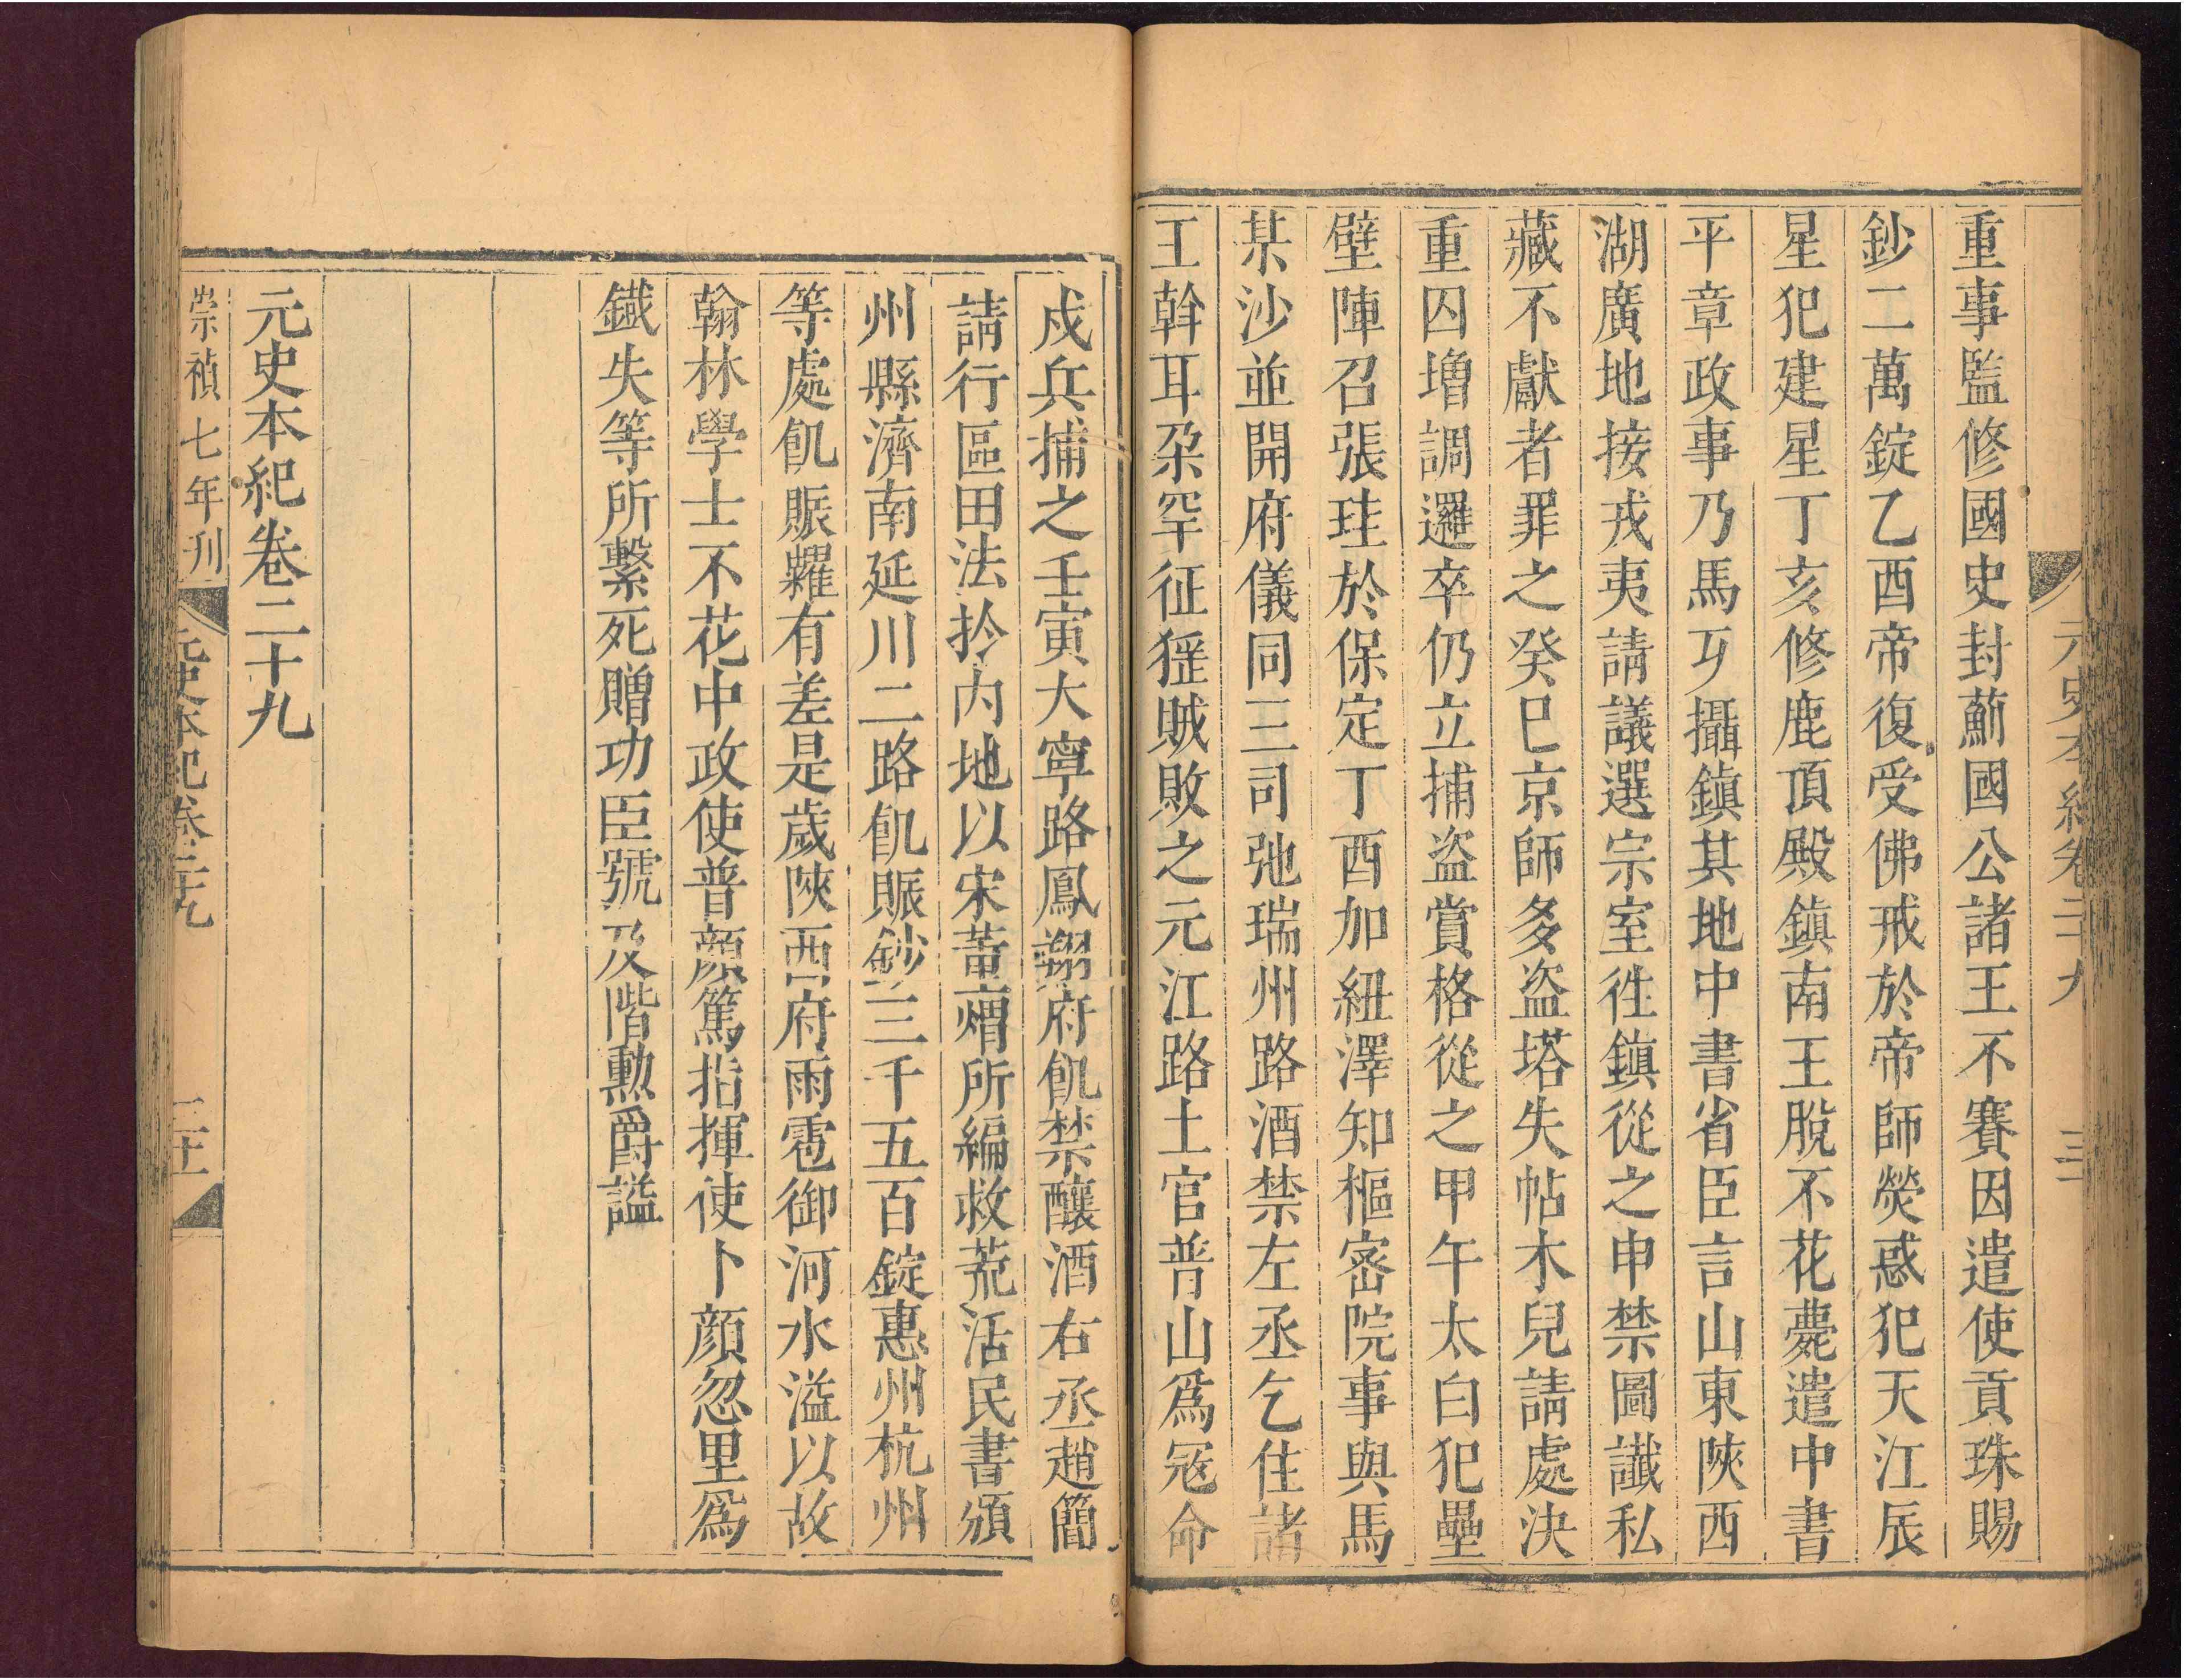 重事監修國史封薊國公諸王不賽因遣使貢珠賜
鈔二萬錠乙酉帝復受佛戒於帝師熒惑犯天江辰
星犯建星丁亥修鹿頂殿鎮南王脫不花薨遣中書
平章政事乃馬歹攝鎮其地中書省臣言山東陝西
湖廣地接戎夷請議選宗室徃鎮從之申禁圖讖私
藏不獻者罪之癸巳京師多盗塔失帖木兒請處決
重囚増調邏卒仍立捕盗賞格從之甲午太白犯壘
壁陣召張珪於保定丁酉加紐澤知樞密院事與馬
某沙並開府儀同三司弛瑞州路酒禁左丞乞住諸
王斡耳朶罕征猺賊敗之元江路土官普山爲冦命
戍兵捕之壬寅大寧路鳳翔府飢禁釀酒右丞趙簡
請行區田法扵内地以宋董煟所編救荒活民書頒
州縣濟南延川二路飢賑鈔三千五百錠惠州杭州
等處飢賑糶有差是歲陝西府雨雹御河水溢以故
翰林學士不花中政使普顔篤指揮使卜顔忽里爲
鐵失等所繫死贈功臣號及階勲爵謚
元史本紀卷二十九
崇禎七年刊
元史本紀卷二十九